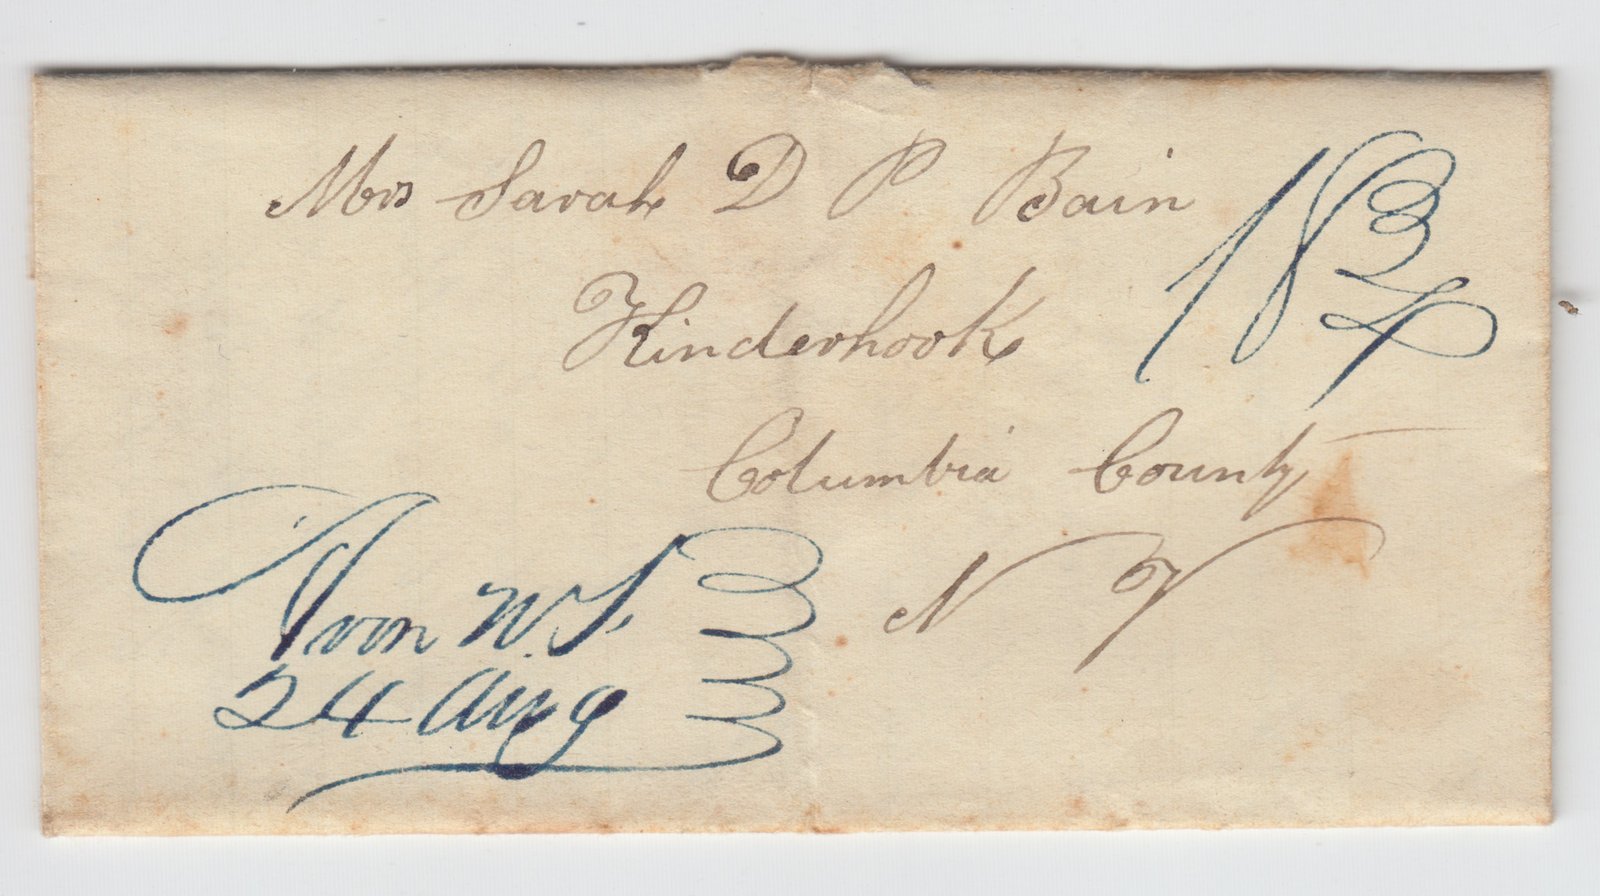 Mrs Sarah D P Bain
18 3/4
Kinderhook
Columbia County
N Y
Avon N.Y.
24 Aug